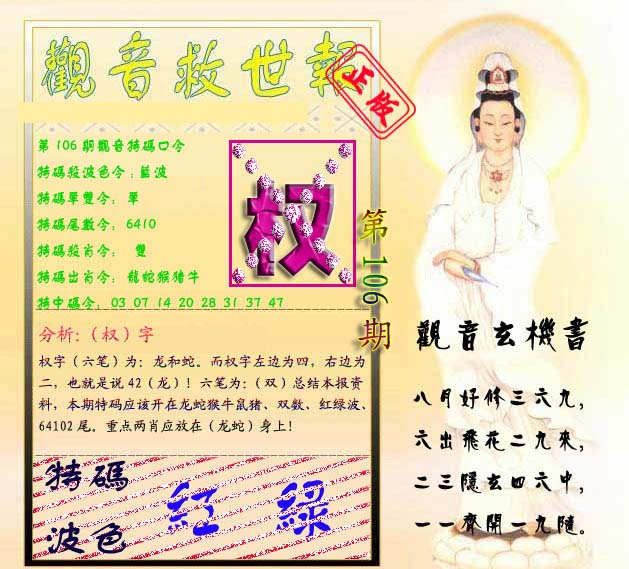 觀音救世報
正版
第106期觀音特碼口令
特碼殺波色令:藍波
特碼單雙令: 單
特碼尾數令: 6410
特碼殺肖令: 雙
特碼出肖令: 龍蛇猴猪牛
特中碼令: 03 07 14 20 28 31 37 47
权
第106期
分析:（权）字
权字（六笔）为：龙和蛇。而权字左边为四，右边为
二，也就是说42（龙）！六笔为:（双）总结本报资
料，本期特码应该开在龙蛇猴牛鼠猪、双数、红绿波、
64102尾。重点两肖应放在（龙蛇）身上！
特碼
波色
紅 綠
觀音玄機書
八月好修三六九，
六出飛花二九來，
二三隱玄四六中，
一一齊開一九隨。